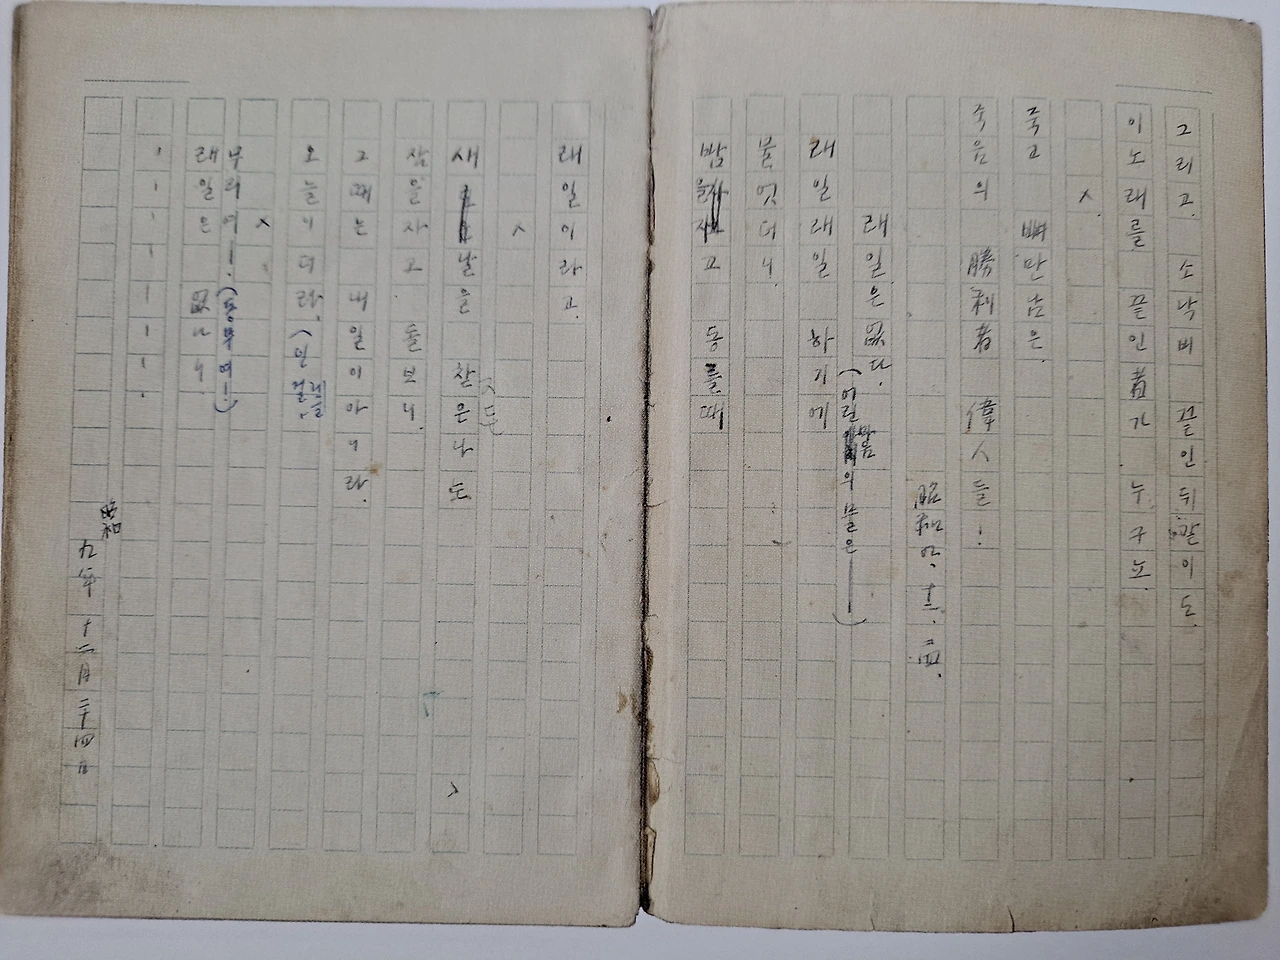 그리고. 소낙비 끝인뒤같이도.
이노래를 끝인者가 누구뇨.
×
죽고 뼈만남은
죽음의 勝利者 偉人들!
昭和九.十二.二四.
래일은없다.
(어린마음의 물은——)
래일래일 하기에
물엇더니
밤을자고 동틀때
래일이라고.
×
새날을 찯은나도
잠을자고 돌보니.
그때는 내일이아니라.
오늘이더라.
×
무리여! (동무여!)
래일은 없나니
昭和
九年 十二月 二十四日